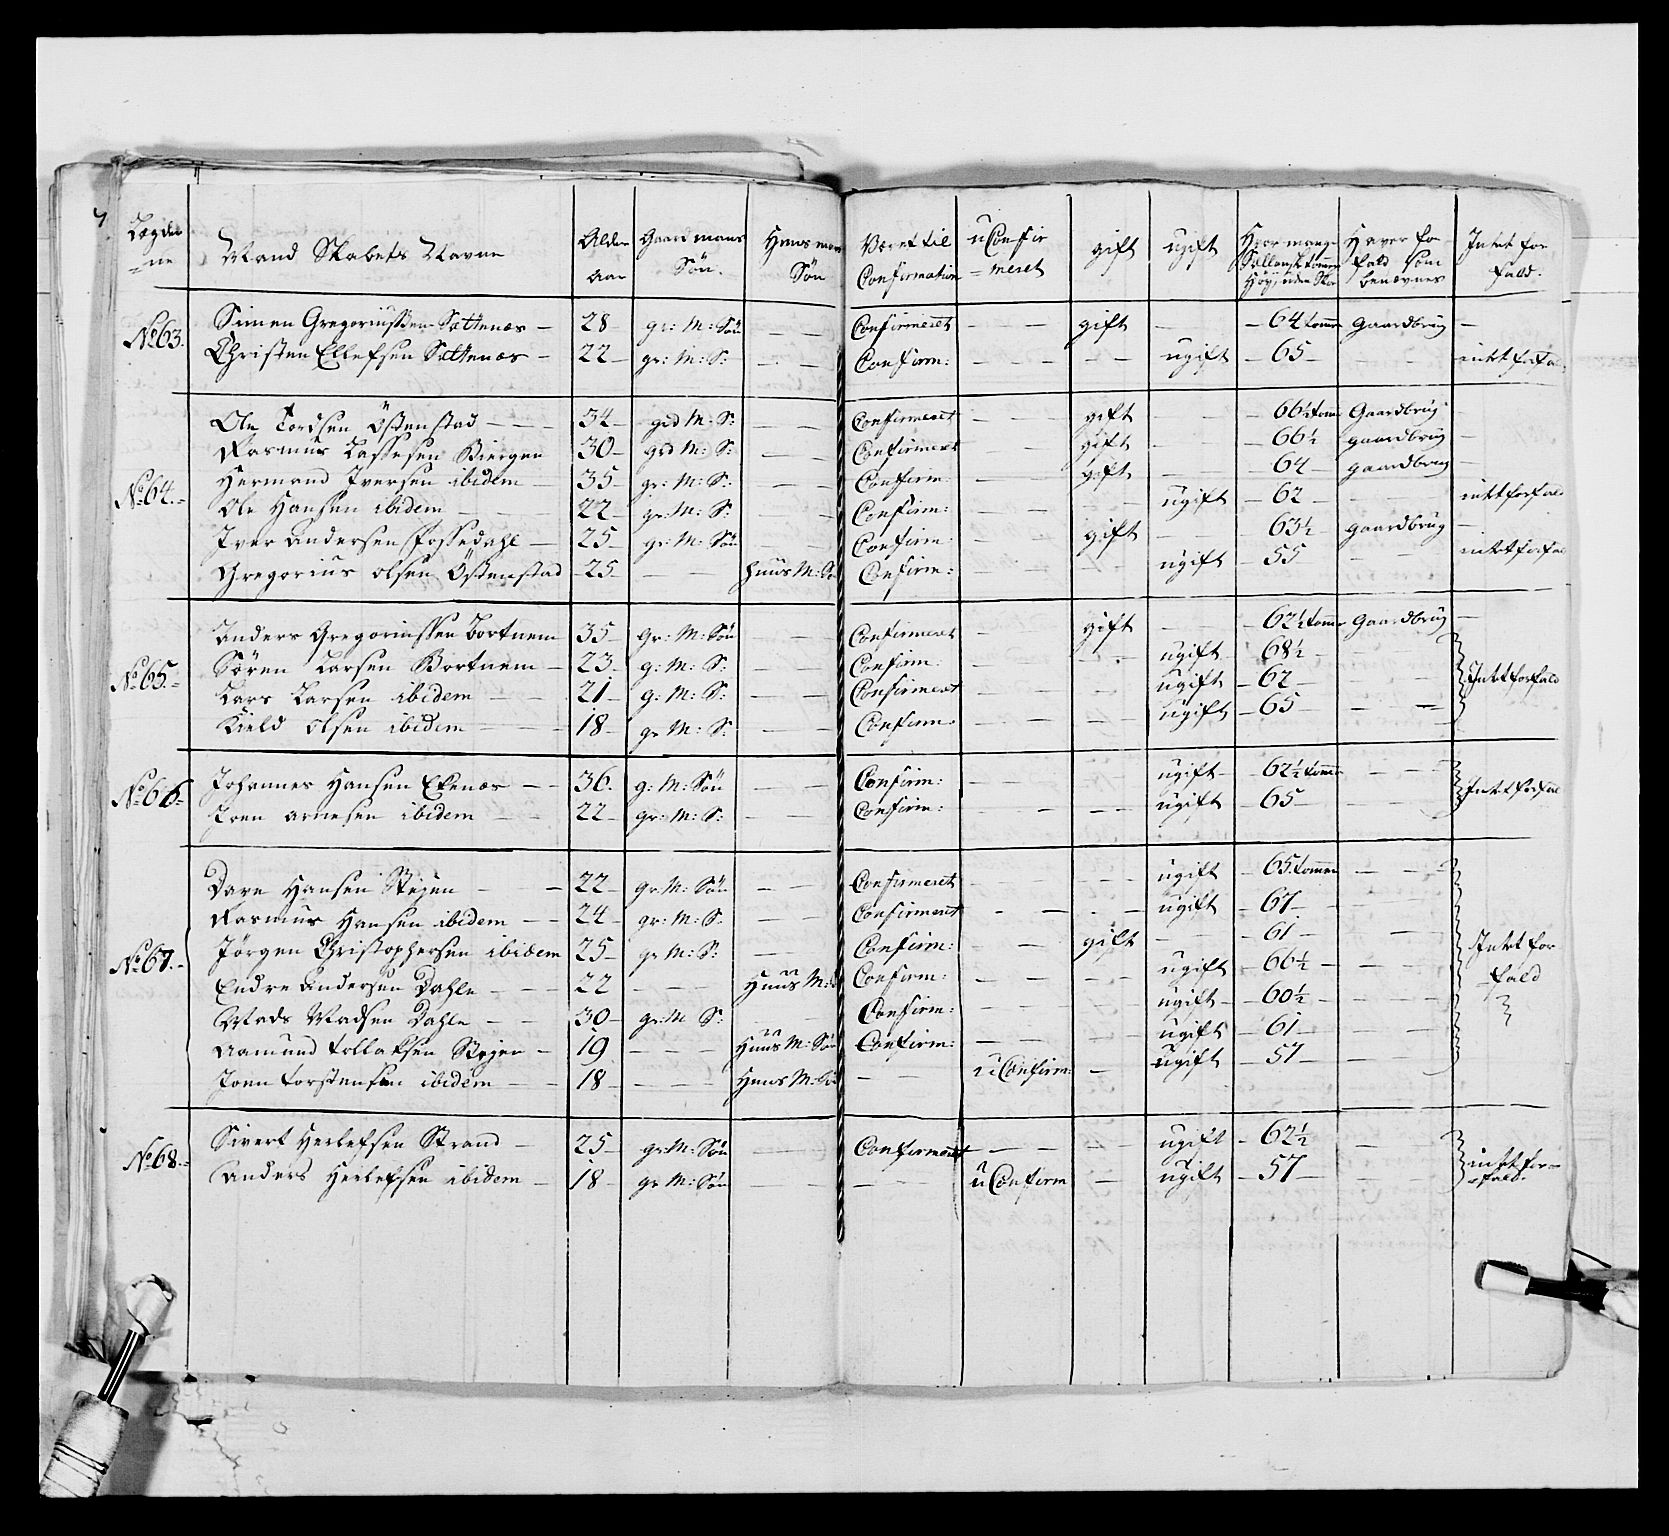 Lægder=ne | Mand Skabets Navne | Alder aar | Gaardmans Søn. | Huusmans Søn | Været til Confirmation | uConfir=meret | gift | ugift | Hvor mange Sællandske tommer Høy, uden Skoe | Haver forfald som benævnes | Intet forfald.
No 63. Simen Gregoriussen Sættenæs — 28 — gr: M: Søn — — Confirmeret — — gift — — 64 tommer Gaardbrug —
Christen Ellefsen Sættenæs — 22 — gr: M: S: — — Confirm: — — — ugift — 65 — — intet forfa
Ole Tordsen Östenstad — — 34 — grd M: S: — — Confirmeret — — gift — — 66½ tomme Gaardbrug —
Rasmus Lassesen Biergen 30 — grd M: S: — — Confirmeret — — gift — — 66½ gaardbrug —
No 64. Hermand Iversen ibidem — 35 — gr: M: S: — — Confirm — — gift — — 64 — gaardbrug —
Ole Hansen ibidem — — 22 — gr: M: S: — — Confirm: — — — ugift — 62 — — intet forfald
Iver Andersen Fossedahl — 25 — gr: M: Søn — Confirm: — — gift — 63½ gaardbrug —
Gregorius olsen Östenstad — 25 — — huus M: Sö Confirm: — — ugift — 55 — intet forfa
Anders Gregoriussen Bortnem 35 — Gr: M: Søn — — Confirmeret — — gift — — 62½ tomme Gaardbrug —
No 65. Sören Larsen Bortnem — 23 — g: M: S: — — Confirm: — — — ugift — 68½ — —
Lars Larsen ibidem — — 21 — g: M: S: — — Confirmeret — — — ugift — 62 — — Intet forfald
Kield Olsen ibidem — — 18 — gr M: S: — — Confirm: — — — ugift — 65 — — —
No 66 Johannes Hansen Ekenæs — 36. g: M: Søn — — Confirm: — — ugift — 62½ tomme — — Intet forfal
Joen arnesen ibidem — — 22 — gr: M: S: — — Confirm: — — — ugift — 65 — —
Dave Hansen Stegen — — 22 — gr: M: Søn — — Confirmeret — — — ugift — 65. tomme — — —
Rasmus Hansen ibidem — — 24 — gr: M: S: — — Confirmeret — — — ugift — 67 — —
No 67. Jörgen Christophersen ibidem 25 — gr M: S: — Confirm: — — gift — — 61 — — Intet for
Endre Andersen Dahle — — 22 — — Huus M: S Confirm: — — — ugift — 66½ — — =fald
Mads Madsen Dahle — — 30 — gr: M S: Confirm: — ugift — 60½ — —
Aamund Tollaksen Stegen — 19 — — — Huus M: Søn Confirm: — — — ugift — 61 — —
Joen Torstensen ibidem — — 18 — — — Huus M: Sön — — uConfirm: — ugift — 57 — —
No 68. Sivert Herlefsen Strand — 25 — gr: M: Søn — — Confirmeret — — — ugift — 62½ — intet for=
Anders Herlefsen ibidem — 18 — gr M: Søn — — — — uConfirm — ugift — 57 — — =fald.